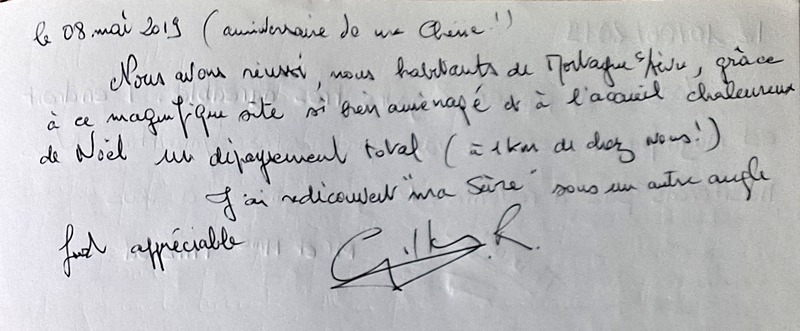 le 08 mai 2019 (anniversaire de ma Chérie !!)
Nous avons réussi, nous habitants de Mortagne s/sèvre, grâce
à ce magnifique site si bien aménagé et à l'accueil chaleureux
de Noël un dépaysement total (à 1km de chez nous !)
J'ai redécouvert "ma Sèvre" sous un autre angle
fort appréciable
Gilles. R.